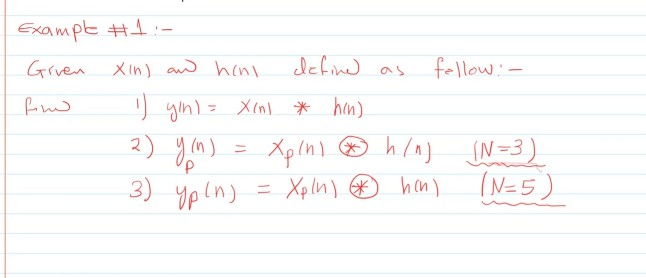 Example #1:-
Given x(n) and h(n) defined as follow:-
find 1) y(n) = x(n) * h(n)
2) yp(n) = xp(n) ⊛ h(n) (N=3)
3) yp(n) = xp(n) ⊛ h(n) (N=5)